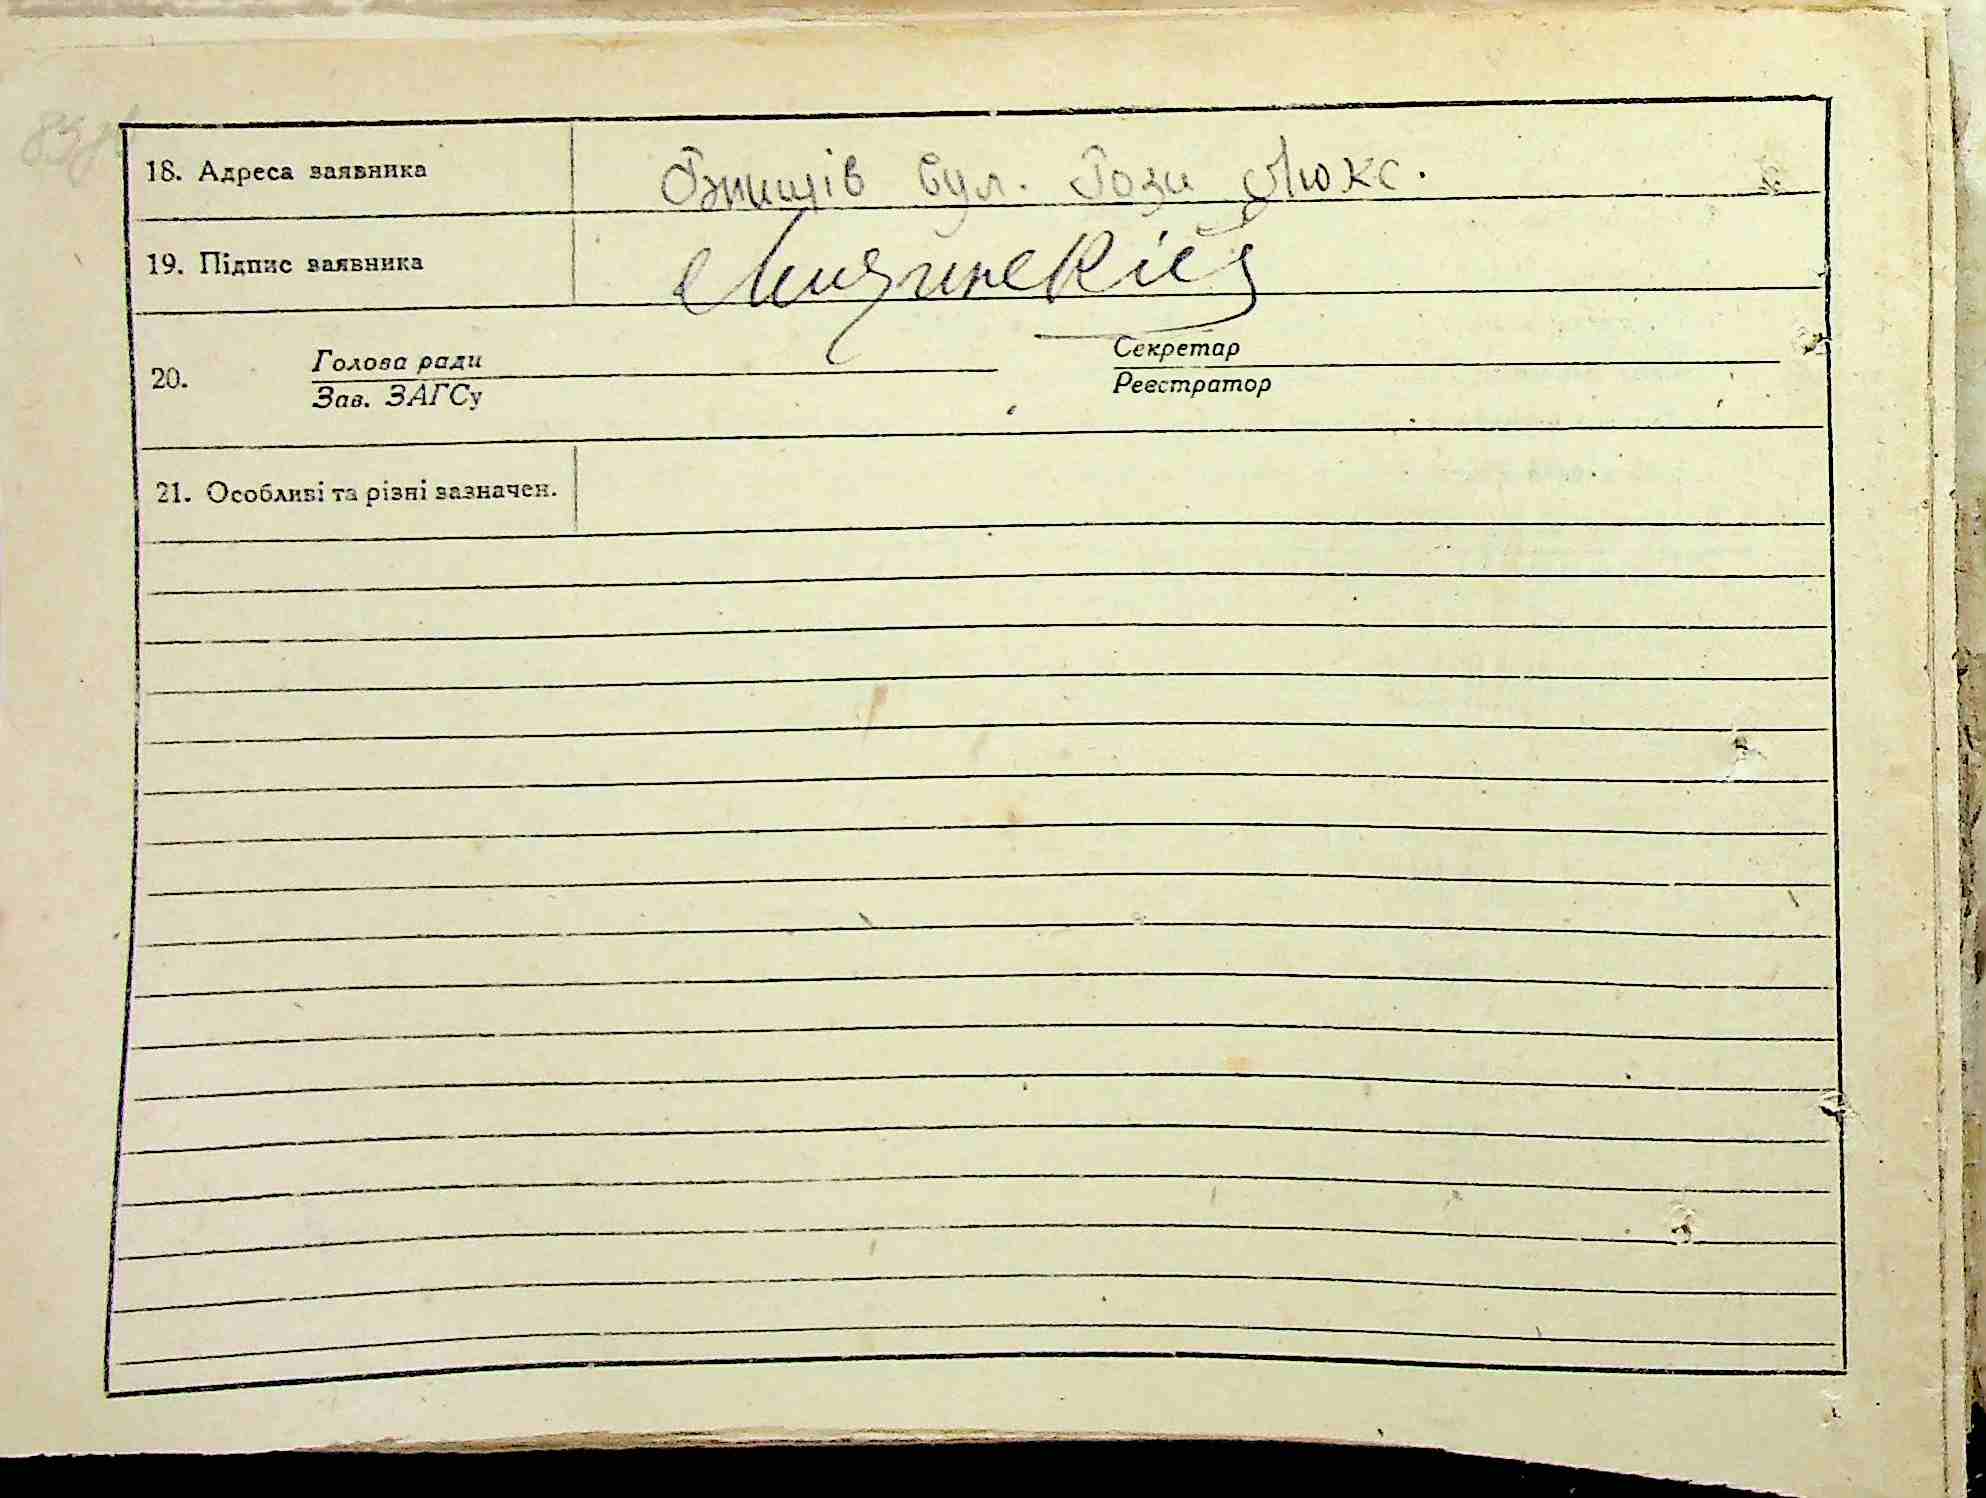 18. Адреса заявника Ржищів вул. Рози Люкс.
19. Підпис заявника
20. Голова ради Секретар
Зав. ЗАГСу Реєстратор
21. Особливі та різні зазначен.